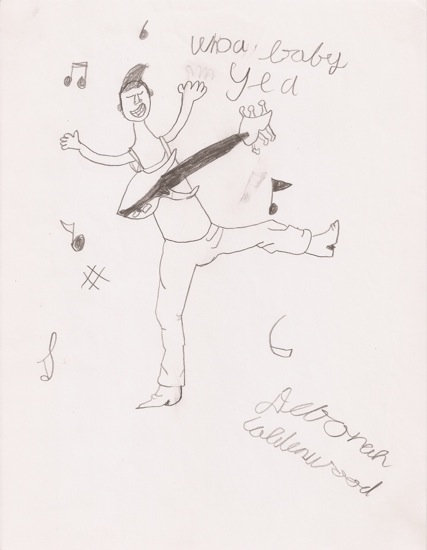 whoa baby
Yea
Deborah
Calderwood